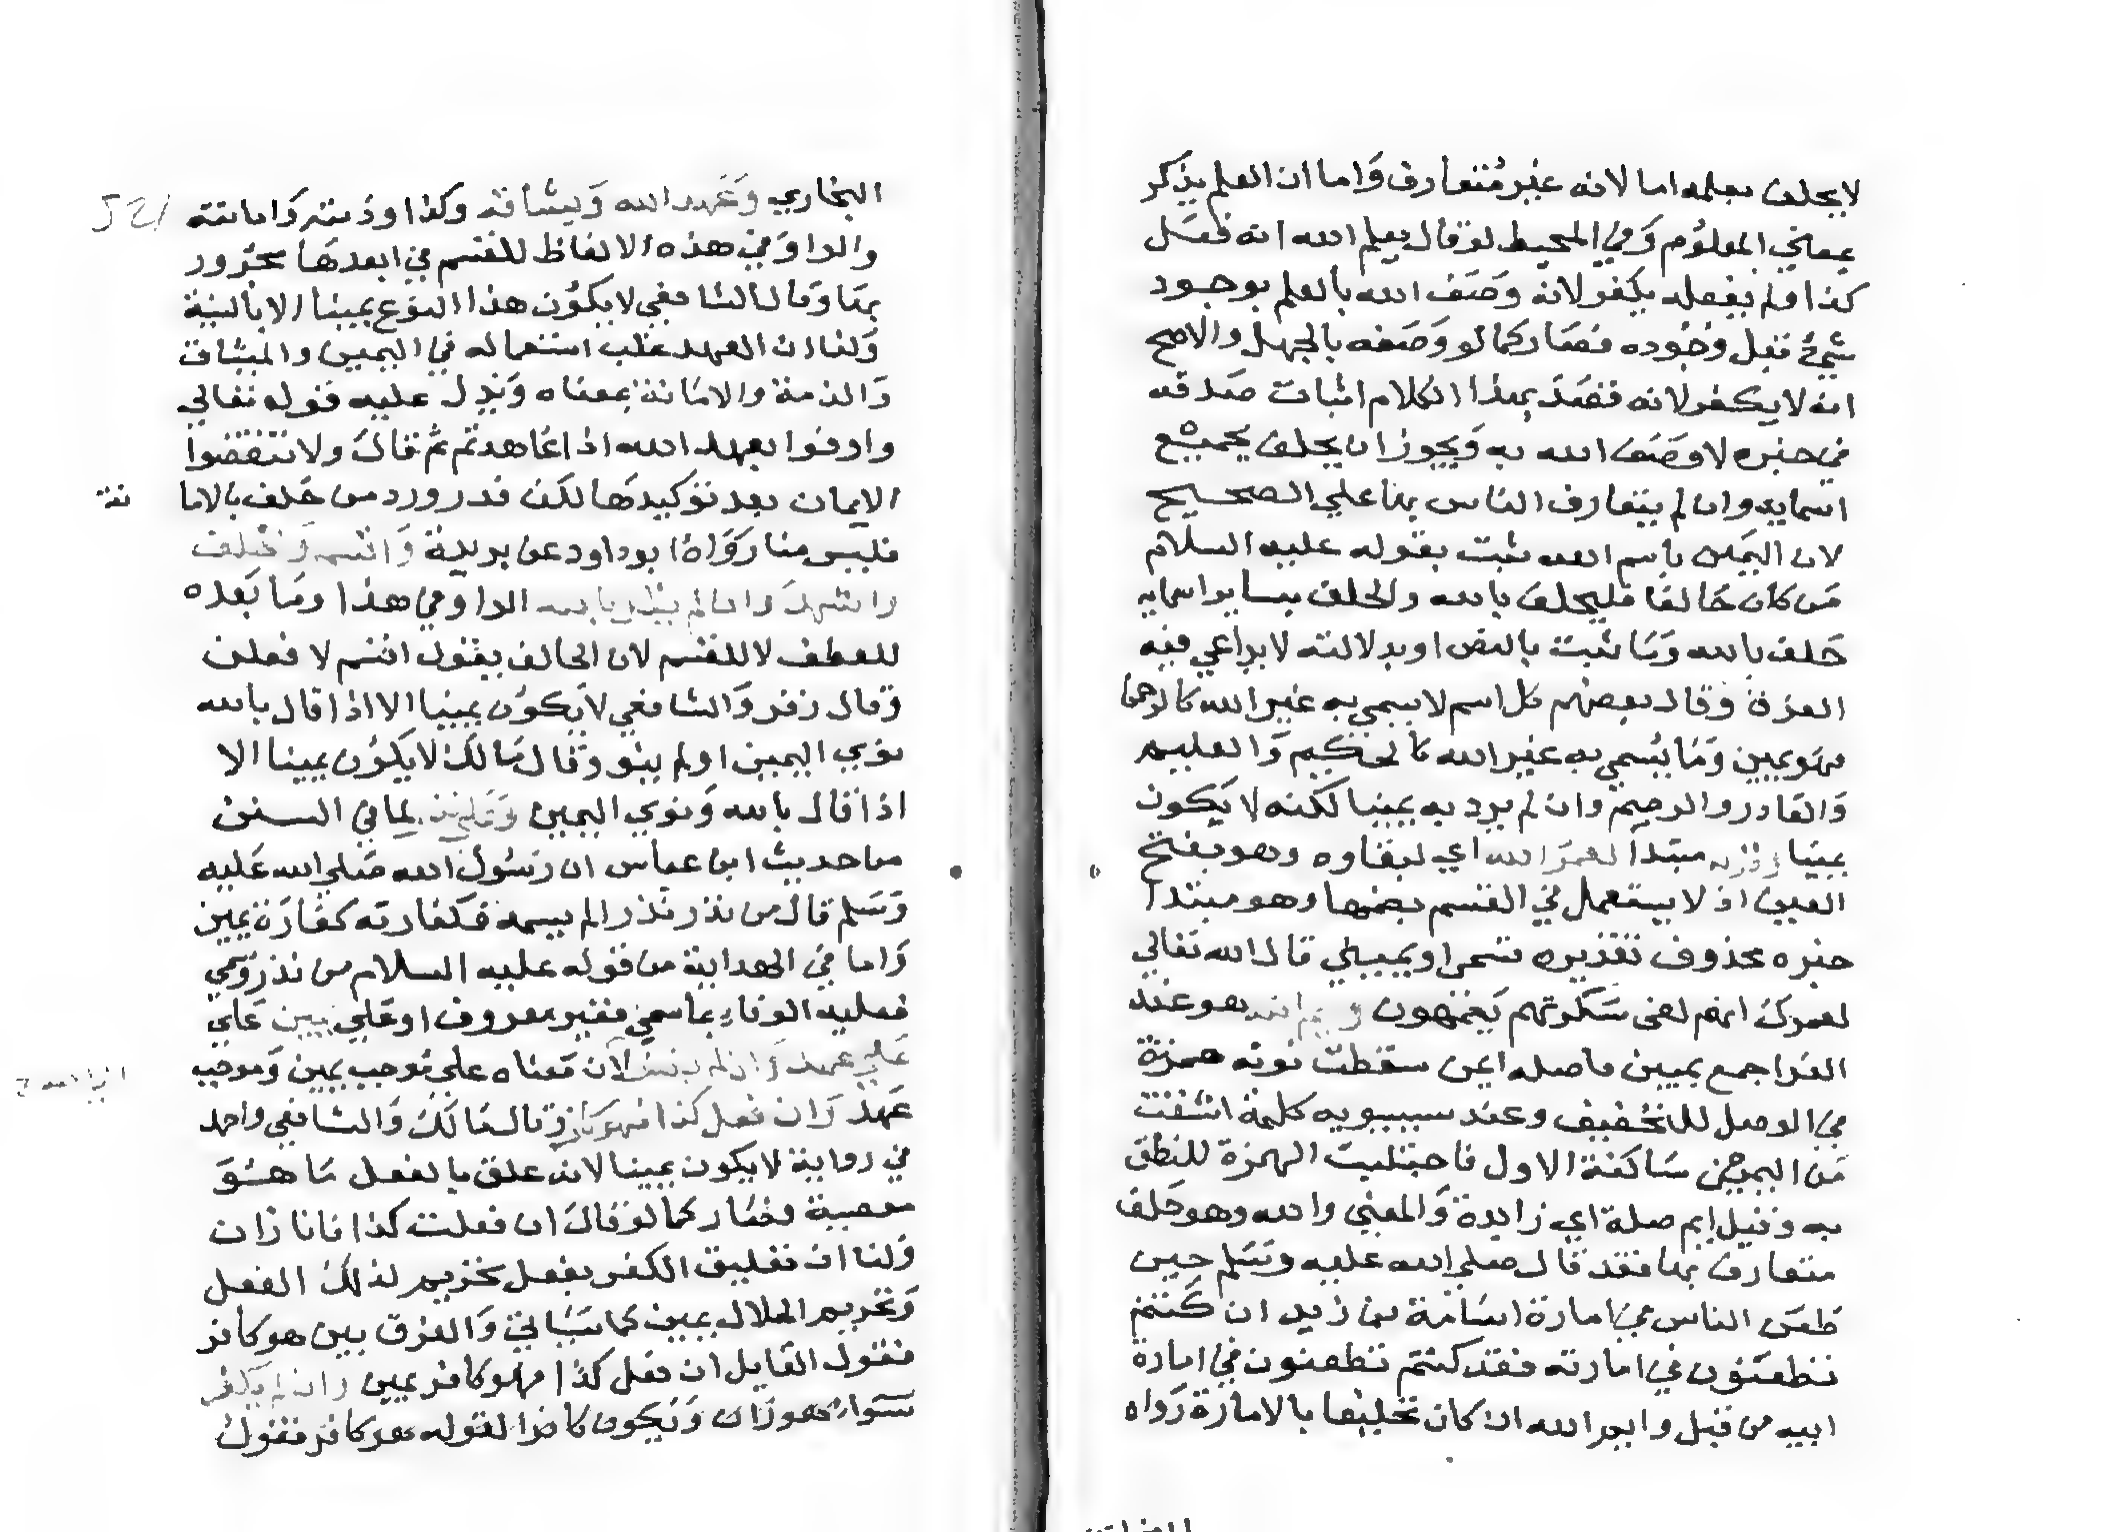 لا يحلف بعلمه اما لانه غير متعارف واما ان العلم يذكر
بمعني المعلوم وفي المحيط لو قال يعلم الله انه فعل
كذا ولم يفعله يكفر لانه وصف الله بالعلم بوجود
شيئ قبل وجوده فصار كما لو وصفه بالجهل والاصح
انه لا يكفر لانه قصد بهذا الكلام اثبات صدقه
في خبره لا وصف الله به ويجوز ان يحلف بجميع
اسمايه وان لم يتعارف الناس بها علي الصحيح
لان اليمين باسم الله ثبت بقوله عليه السلام
من كان حالفا فليحلف بالله والحلف بساير اسمايه
حلف بالله وما ثبت بالنص او بدلالته لا يراعي فيه
العزة وقال بعضهم كل اسم لا يسمي به غير الله كالرحمن
فهو يمين وما يسمي به غير الله كالحكيم والعليم
والقادر والرحيم وان لم يرد به يمينا لكنه لا يكون
يمينا مبتدا لعمر الله اي لبقاوه وهو بفتح
العين اذ لا يستعمل في القسم بضمها وهو مبتدا
خبره محذوف تقديره قال الله تعالي
لعمرك انهم لفي سكرتهم يعمهون وايم الله هو عند
الفرا جمع يمين فاصله ايمن سقطت نونه همزة
في الوصل للتخفيف وعند سيبويه كلمة اشتقت
من اليمين ساكنة الاول فاجتلبت الهمزة للنطق
به وقيل ايم صلة اي زايدة والمعني والله وهو حلف
متعارف بها فقد قال صلي الله عليه وسلم حين
طعن الناس في امارة اسامة بن زيد ان كنتم
تطعنون في امارته فقد كنتم تطعنون في امارة
ابيه من قبل وايم الله ان كان لخليقا بالامارة رواه
البخاري وعهد الله وميثاقه وكذا وذمته وامانته
والواو في هذه الالفاظ للقسم فما بعدها مجرور
بها وقال الشافعي لا يكون هذا النوع يمينا الا بالنية
ولنا ان العهد غلب استعماله في اليمين والميثاق
والذمة والامانة بمعناه ويدل عليه قوله تعالي
واوفوا بعهد الله اذا عاهدتم ثم قال ولا تنقضوا
الايمان بعد توكيدها لكن قد ورد من حلف بالاما نة
فليس منا رواه ابو داود عن بريدة واقسم واحلف
واشهد وان لم يقل بالله الواو في هذا وما بعده
للعطف لا للقسم لان الحالف يقول اقسم لافعلن
وقال زفر والشافعي لا يكون يمينا الا اذا قال بالله
نوي اليمين او لم ينو وقال مالك لا يكون يمينا الا
اذا قال بالله ونوي اليمين وعلي نذر لما في السنن
من حديث ابن عباس ان رسول الله صلي الله عليه
وسلم قال من نذر نذرا لم يسمه فكفارته كفارة يمين
واما في الهداية من قوله عليه السلام من نذر وسمي
فعليه الوفاء بما سمي فغير معروف او علي يمين علي
علي عهد وان لم يضف لان معناه علي موجب يمين وموجب
عهد وان فعل كذا فهو كافر وقال مالك والشافعي واحمد
في رواية لا يكون يمينا لانه علق بالفعل ما هو
معصية وصار كما لو قال ان فعلت كذا فانا زان
ولنا ان تعليق الكفر بفعل تحريم لذلك الفعل
وتحريم الحلال يمين كما سياتي والفرق بين هو كافر
فقول القايل ان فعل كذا فهو كافر يمين وان لم يكفر
سواء هو زان ويكون كافرا لقوله هو كافر فقول